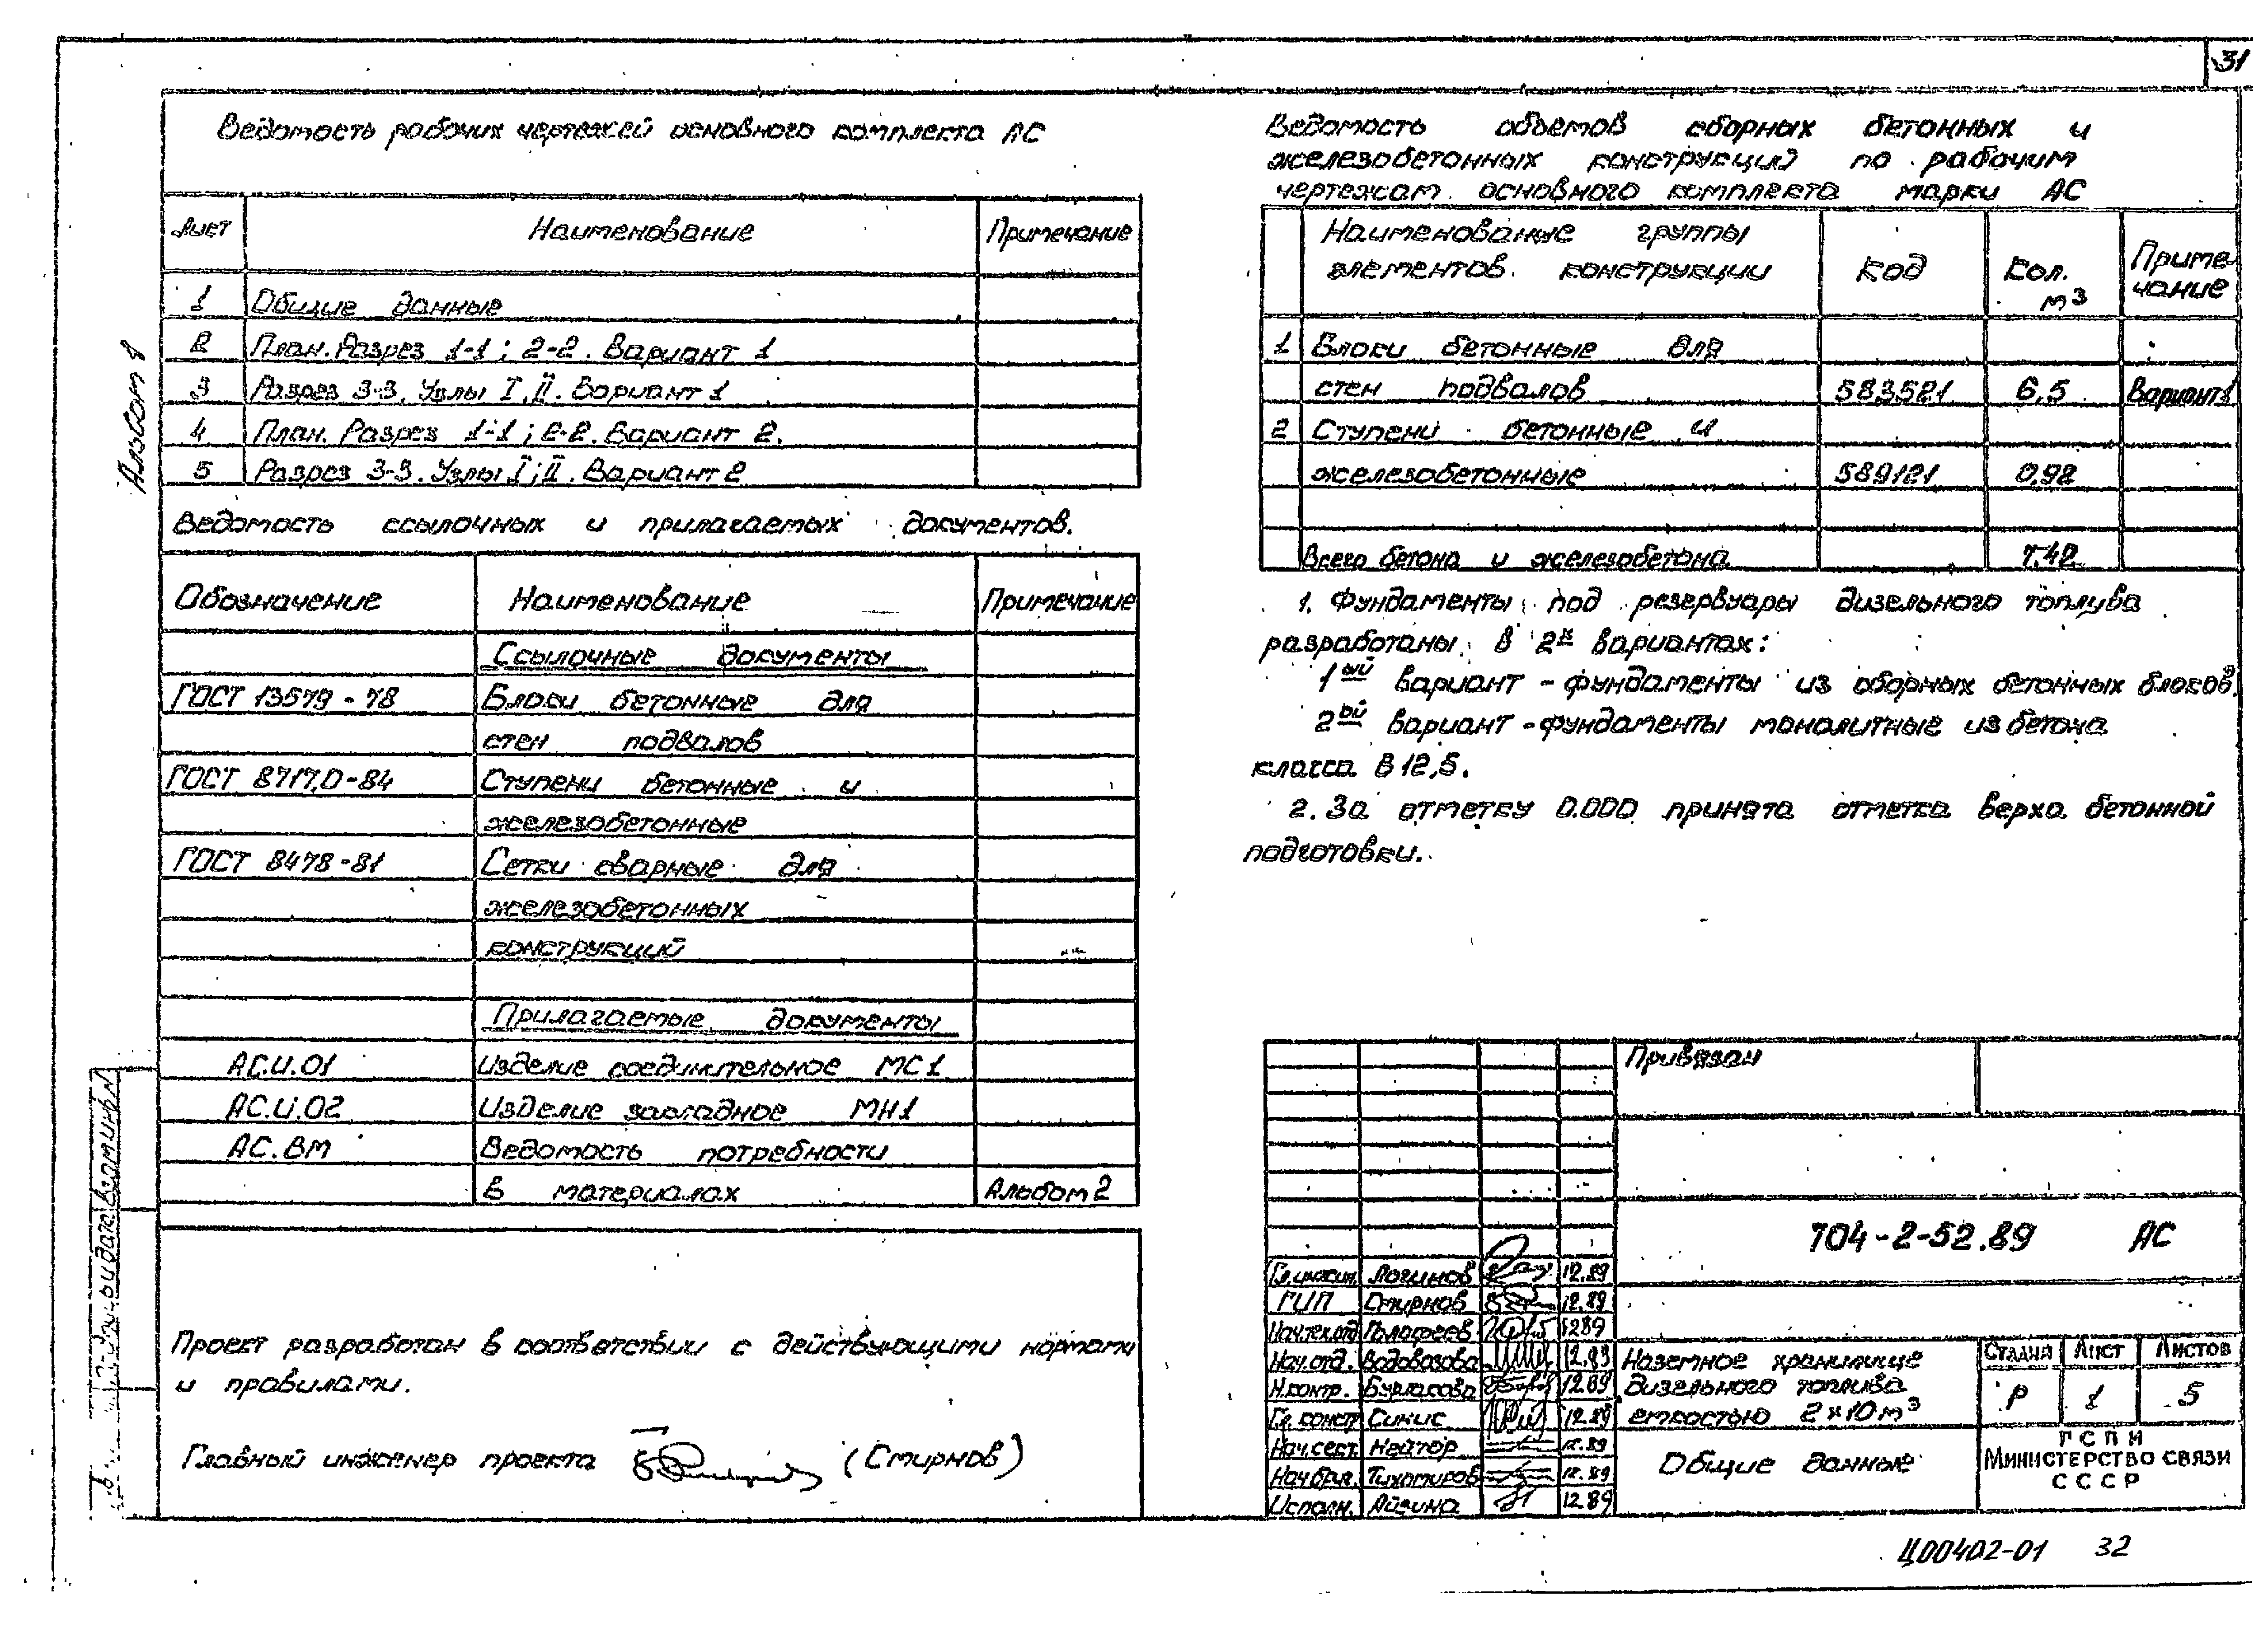 31
Ведомость рабочих чертежей основного комплекта АС
Лист Наименование Примечание
1 Общие данные
2 План. Разрез 1-1; 2-2. Вариант 1
3 Разрез 3-3. Узлы I, II. Вариант 1
4 План. Разрез 1-1; 2-2. Вариант 2.
5 Разрез 3-3. Узлы I; II. Вариант 2
Альбом 1
Ведомость ссылочных и прилагаемых документов.
Обозначение Наименование Примечание
Ссылочные документы
ГОСТ 13579-78 Блоки бетонные для
стен подвалов
ГОСТ 8717.0-84 Ступени бетонные и
железобетонные
ГОСТ 8478-81 Сетки сварные для
железобетонных
конструкций
Прилагаемые документы
АС.И.01 Изделие соединительное МС1
АС.И.02 Изделие закладное МН1
АС.ВМ Ведомость потребности
в материалах Альбом 2
Проект разработан в соответствии с действующими нормами
и правилами.
Главный инженер проекта (Смирнов)
Ведомость объемов сборных бетонных и
железобетонных конструкций по рабочим
чертежам основного комплекта марки АС
Наименование группы
элементов конструкции Код Кол. м3 Приме-
чание
1 Блоки бетонные для
стен подвалов 583521 6,5 Вариант 1
2 Ступени бетонные и
железобетонные 589121 0,92
Всего бетона и железобетона 7.42
1. Фундаменты под резервуары дизельного топлива
разработаны в 2х вариантах:
1ый вариант - фундаменты из сборных бетонных блоков.
2ой вариант - фундаменты монолитные из бетона
класса В 12,5.
2. За отметку 0.000 принята отметка верха бетонной
подготовки.
Привязан
704-2-52.89 АС
Гл.инжин. Логинов 12.89
ГИП Смирнов 12.89
Нач.тех.отд 1289
Нач.отд. Водовозова 12.89
Н.контр. Бурласова 12.89
Гр. констр Синис 12.89
Нач.сект. Нейтор 12.89
Нач.бриг. Тихомиров 12.89
Исполн. 12.89
Наземное хранилище
дизельного топлива
емкостью 2х10м3
Стадия Лист Листов
Р 1 5
Общие данные
ГСПИ
Министерство связи
СССР
Ц00402-01 32